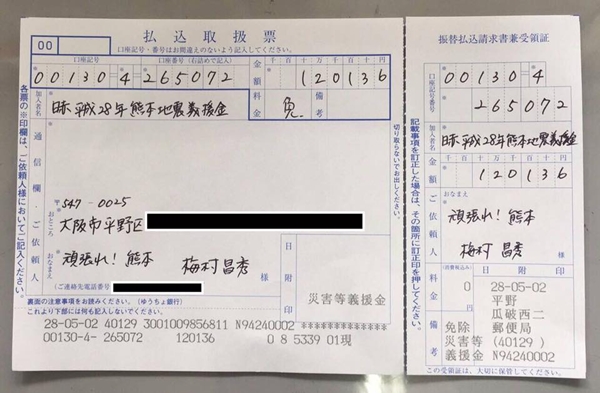 払込取扱票
00
口座記号・番号はお間違えのないよう記入してください。
口座記号 口座番号(右詰めで記入) 金額 千百十万千百十円
00130 4 265072 120136
加入者名 日赤平成28年熊本地震義援金 料金 免 備考
通信欄・ご依頼人
〒547-0025
おところ 大阪市平野区
おなまえ 頑張れ!熊本 梅村昌秀 様
(ご連絡先電話番号
日附印
災害等義援金
裏面の注意事項をお読みください。(ゆうちょ銀行)
これより下部には何も記入しないでください。
28-05-02 40129 3001009856811 N94240002 ****************
00130-4- 265072 120136 0 8 5339 01現
各票の※印欄は、ご依頼人様においてご記入ください。
切り取らないでお出しください。
振替払込請求書兼受領証
口座記号番号 00130 4
265072
加入者名 日赤平成28年熊本地震義援金
金額 千百十万千百十円
120136
ご依頼人 おなまえ
頑張れ!熊本
梅村昌秀
様
料金 (消費税込み) 0円
備考 免除
日附印
28-05-02
平野
瓜破西二
郵便局
災害等 (40129)
義援金 N94240002
記載事項を訂正した場合は、その箇所に訂正印を押してください。
この受領証は、大切に保管してください。